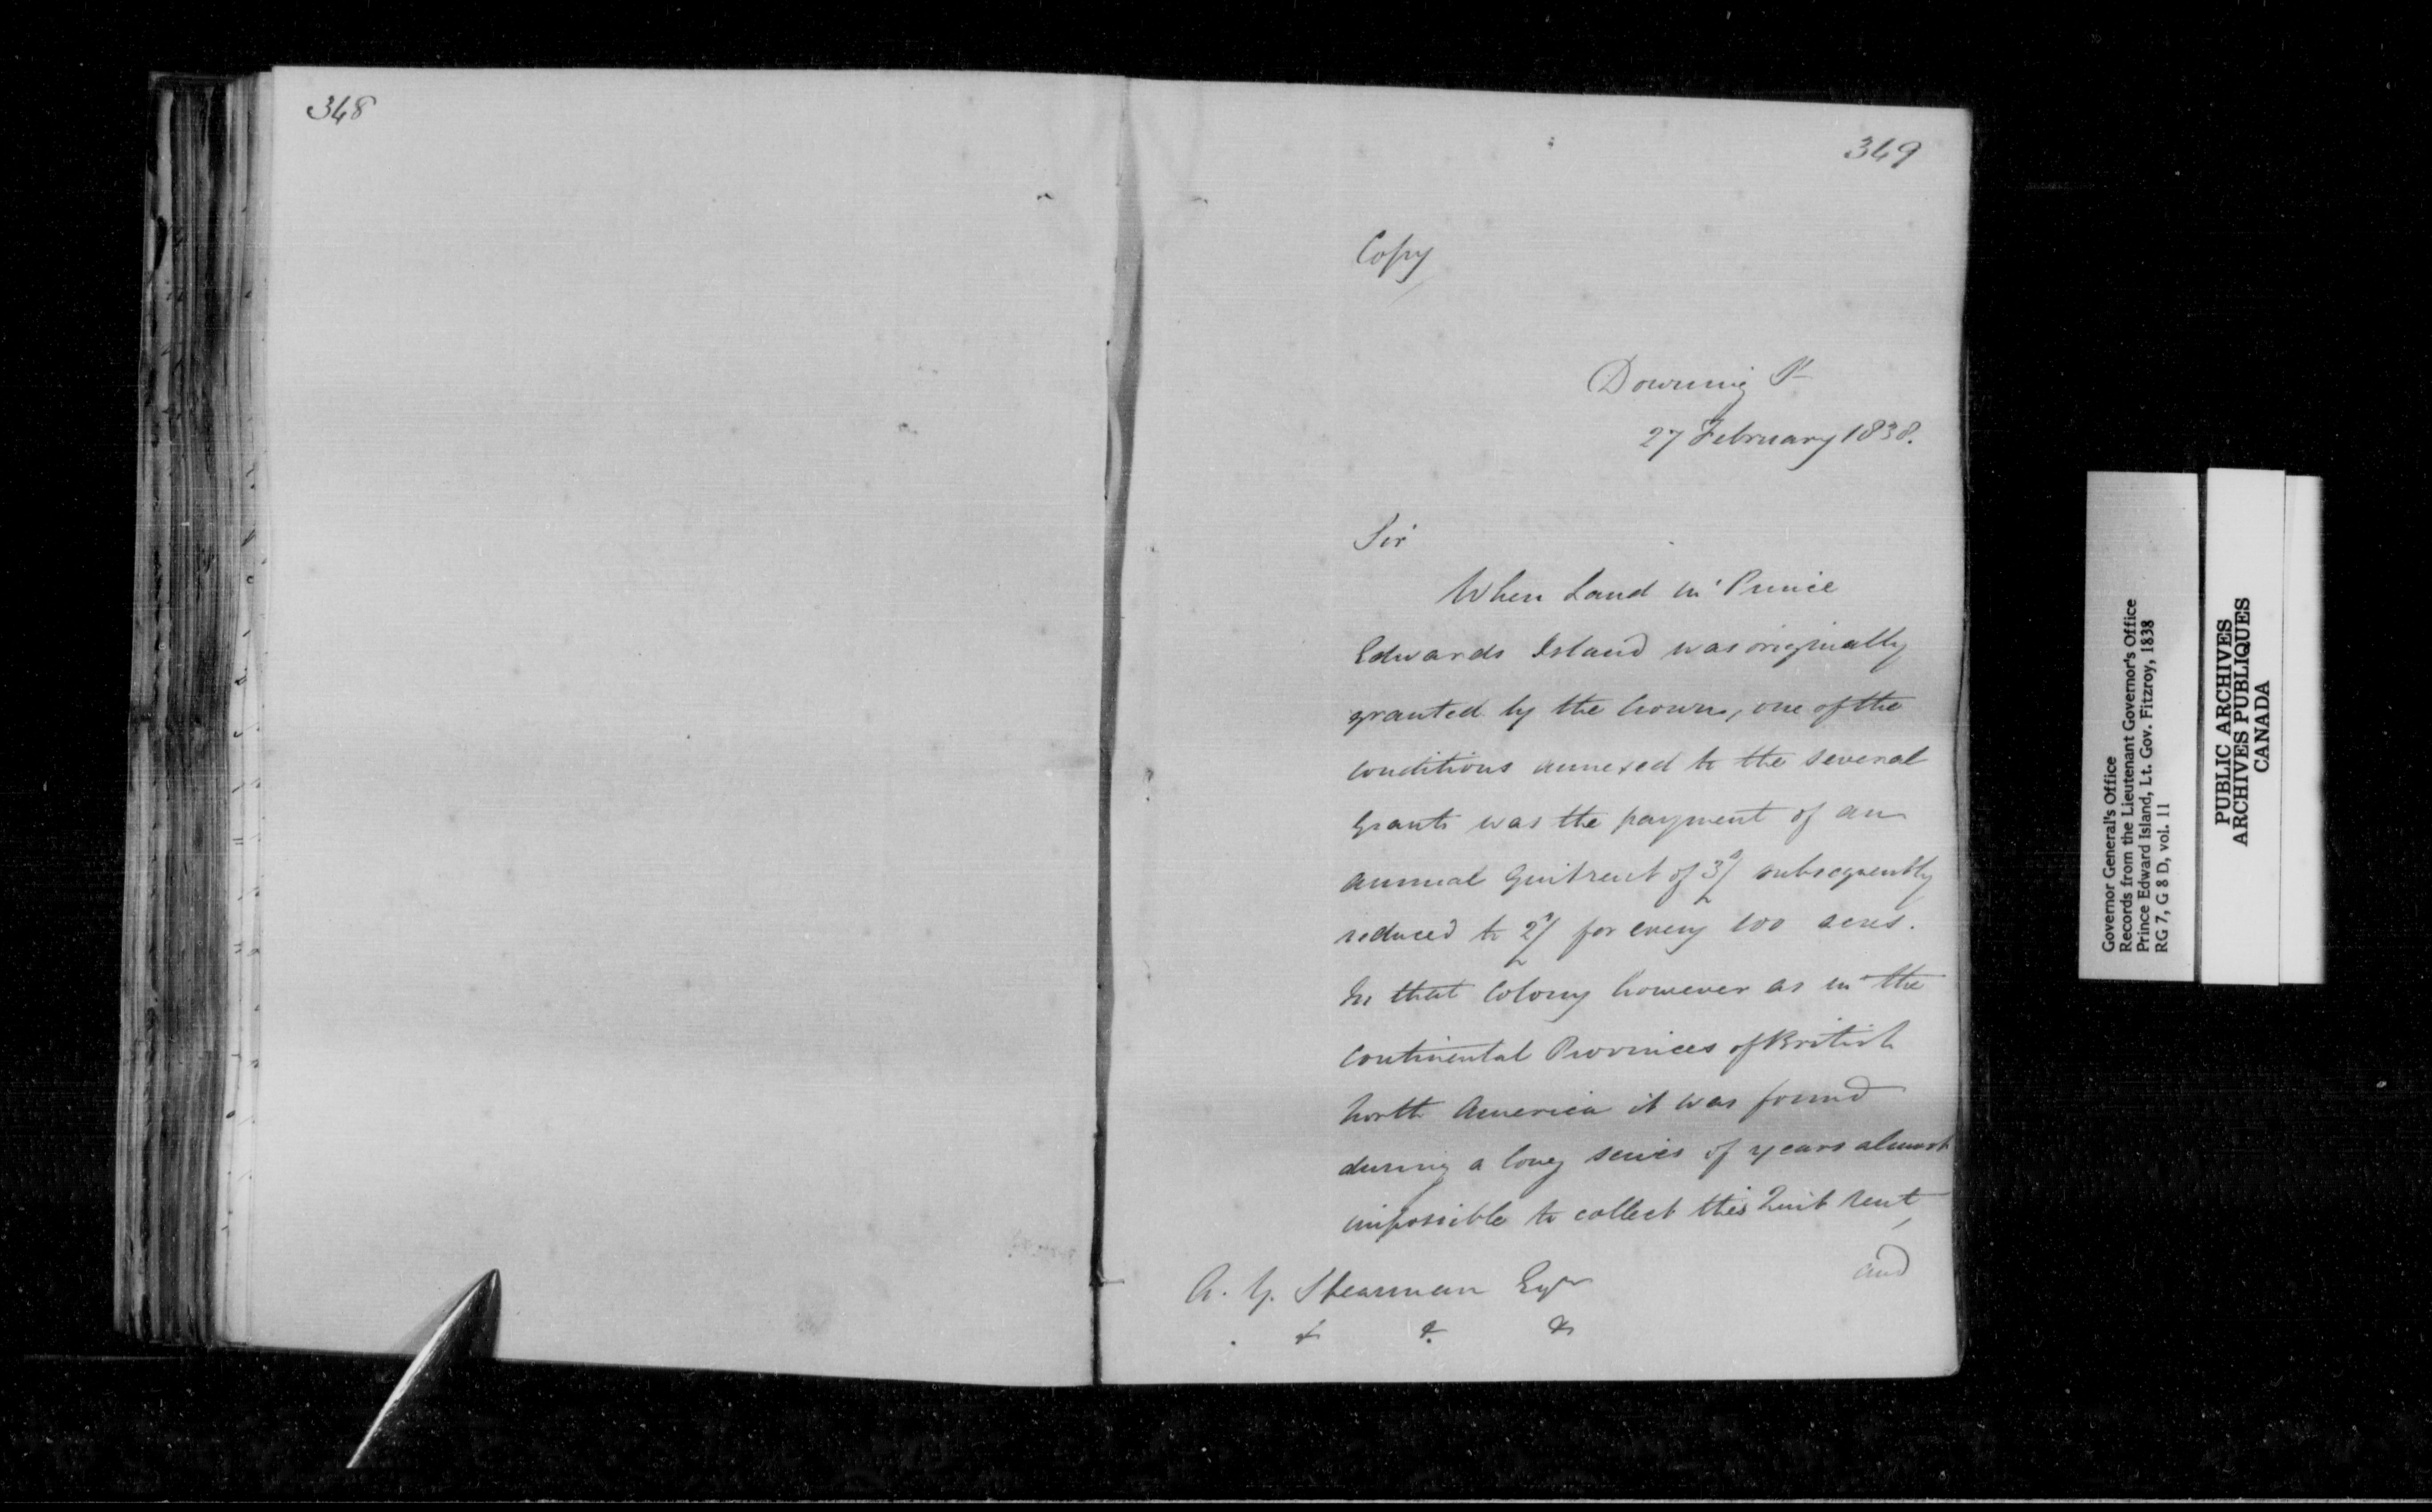 348
349
Copy
Downing St
27 February 1838.
Sir
When Land in Prince
Edwards Island was originally
granted by the Crown, one of the
conditions annexed to the several
Grants was the payment of an
annual Quitrent of 3/ subsequently
reduced to 2/ for every 100 acres.
In that Colony however as in the
Continental Provinces of British
North America it was found
during a long series of years almost
impossible to collect this Quit Rent,
and
A. Y. Spearman Esqr
& & &
Governor General's Office
Records from the Lieutenant Governor's Office
Prince Edward Island, Lt. Gov. Fitzroy, 1838
RG 7, G 8 D, vol. 11
PUBLIC ARCHIVES
ARCHIVES PUBLIQUES
CANADA